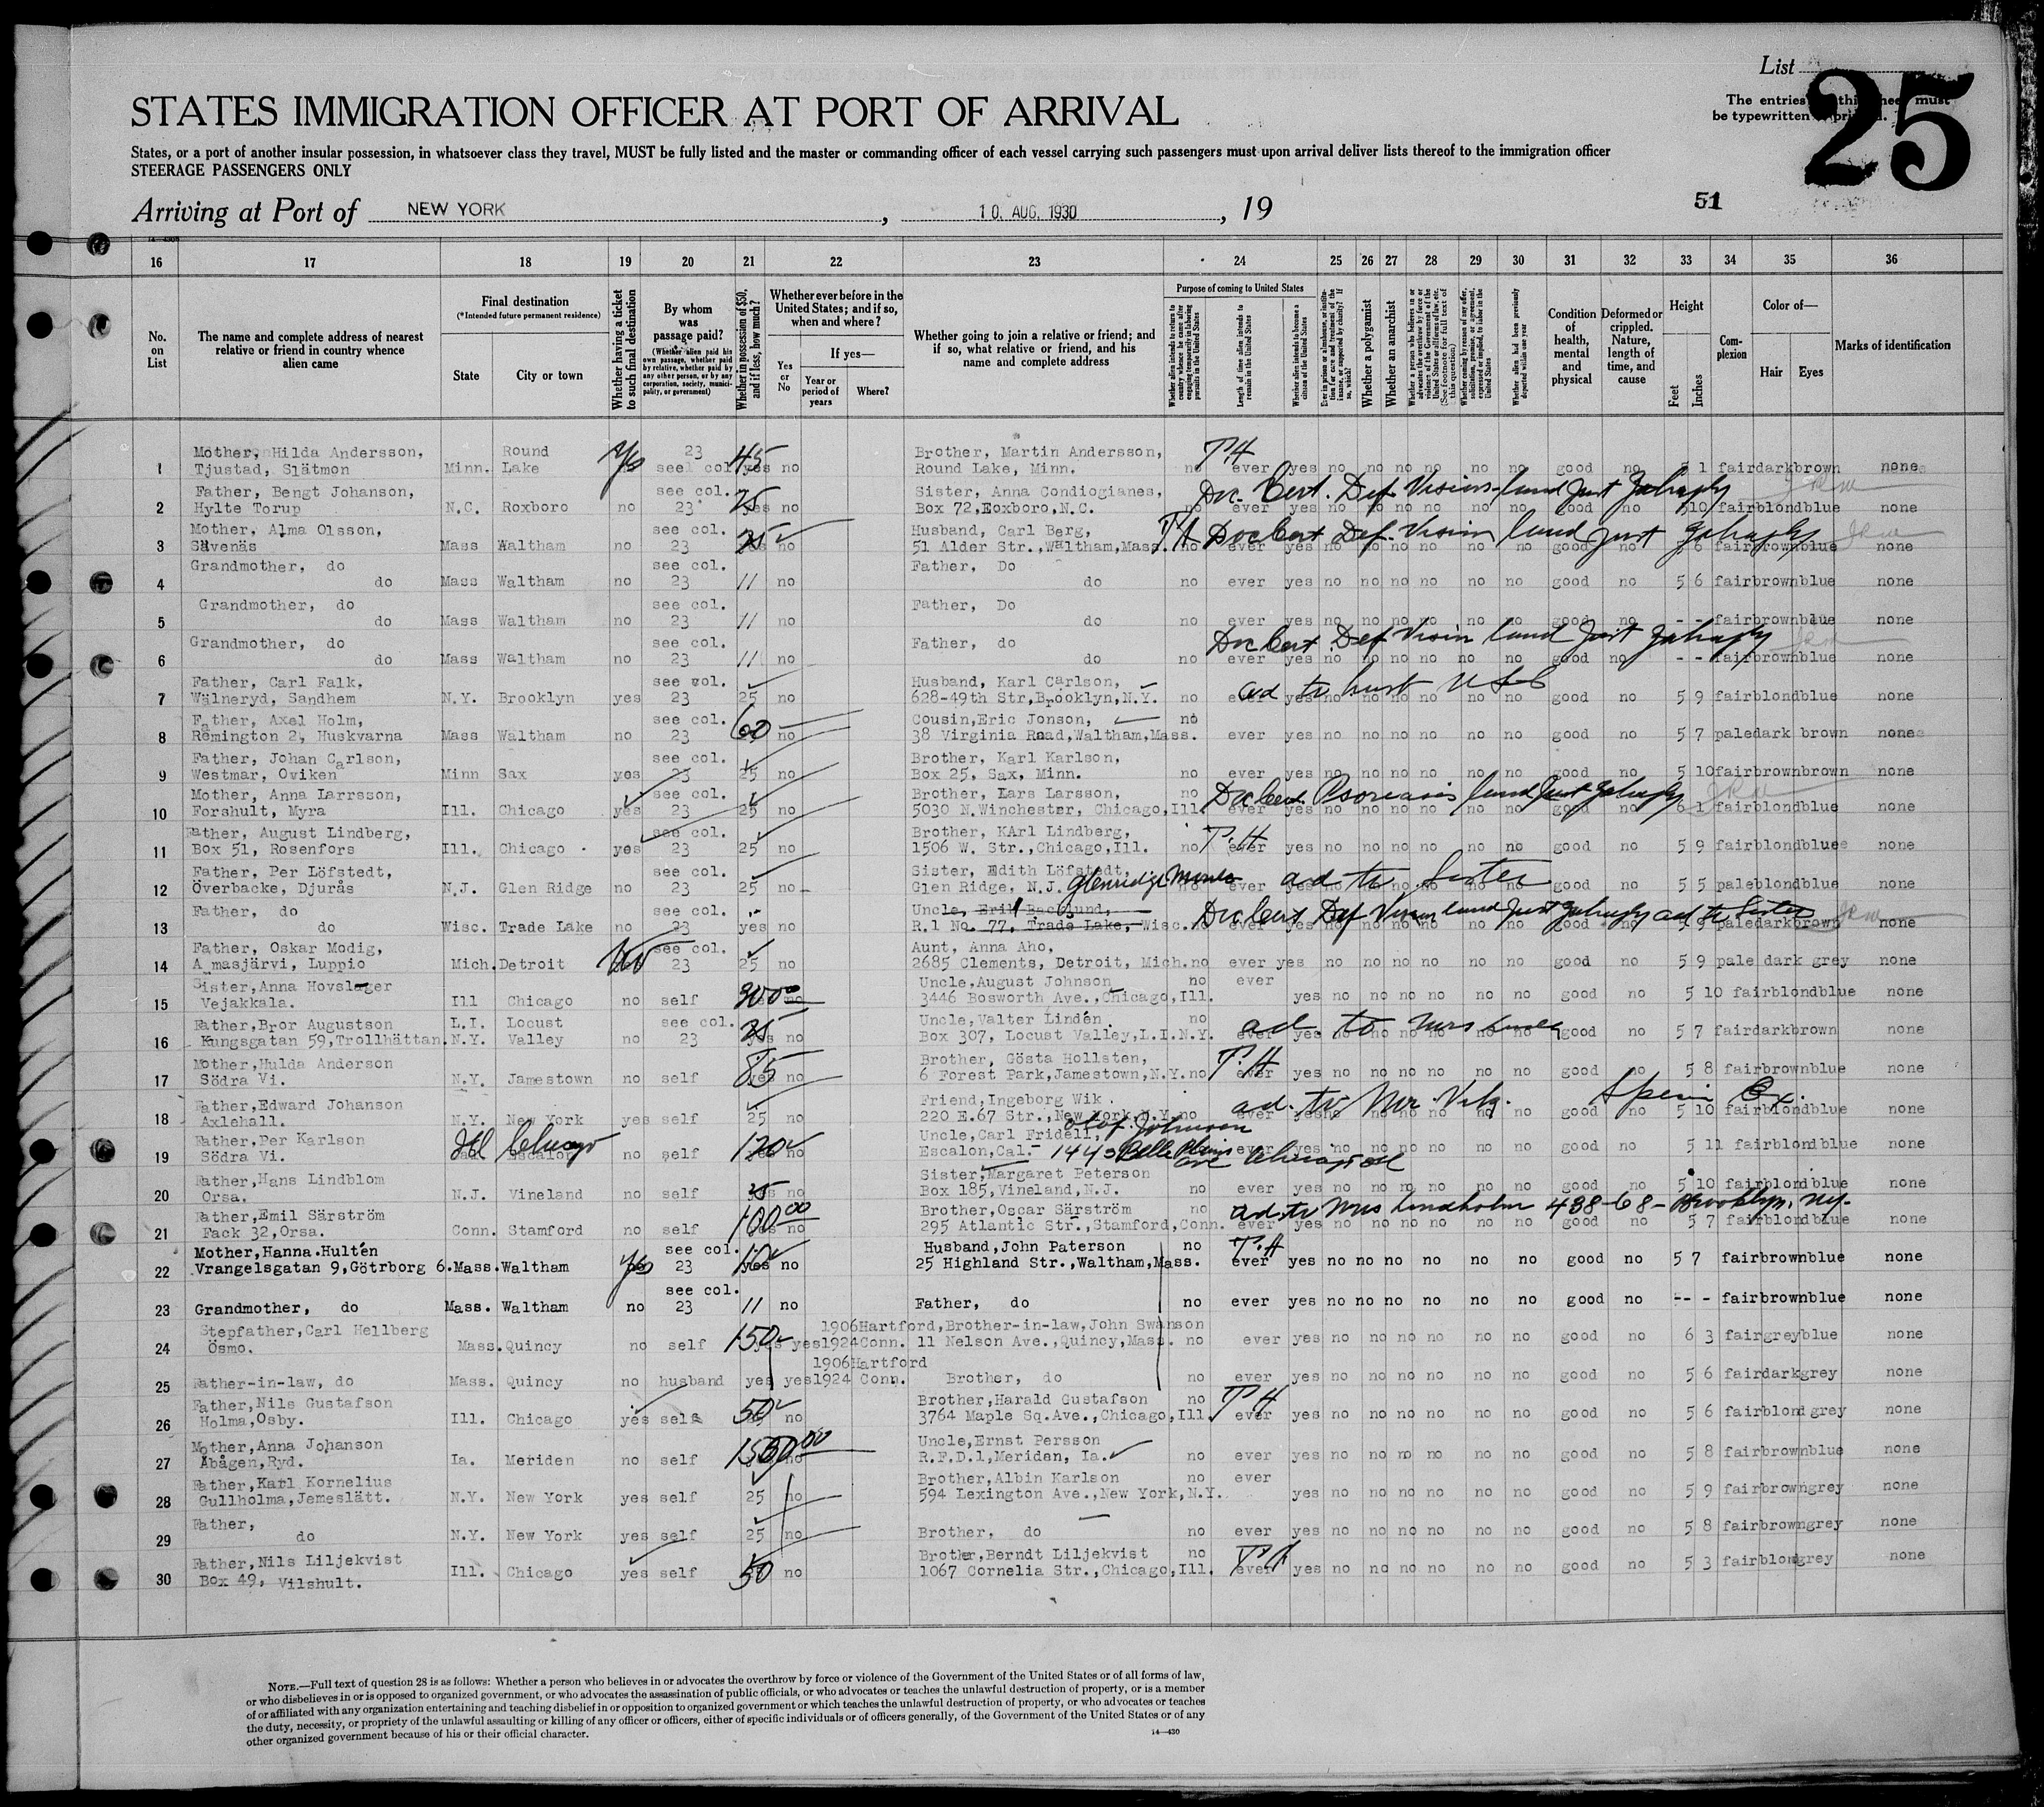 List
25
The entries on this sheet must
be typewritten or printed.
STATES IMMIGRATION OFFICER AT PORT OF ARRIVAL
States, or a port of another insular possession, in whatsoever class they travel, MUST be fully listed and the master or commanding officer of each vessel carrying such passengers must upon arrival deliver lists thereof to the immigration officer
STEERAGE PASSENGERS ONLY
Arriving at Port of NEW YORK, 10. AUG. 1930, 19
51
16 17 18 19 20 21 22 23 24 25 26 27 28 29 30 31 32 33 34 35 36
No. on List
The name and complete address of nearest relative or friend in country whence alien came
Final destination (*Intended future permanent residence)
State
City or town
Whether having a ticket to such final destination
By whom was passage paid?
(Whether alien paid his own passage, whether paid by relative, whether paid by any other person, or by any corporation, society, municipality, or government)
Whether in possession of $50, and if less, how much?
Whether ever before in the United States; and if so, when and where?
Yes or No
If yes—
Year or period of years
Where?
Whether going to join a relative or friend; and if so, what relative or friend, and his name and complete address
Purpose of coming to United States
Length of time alien intends to remain in the United States
Whether alien intends to become a citizen of the United States
Whether a polygamist
Whether an anarchist
Condition of health, mental and physical
Deformed or crippled. Nature, length of time, and cause
Height
Feet
Inches
Complexion
Color of—
Hair
Eyes
Marks of identification
1 Mother, Hilda Andersson, Tjustad, Slätmon Minn. Round Lake Yes see col 23 45 no Brother, Martin Andersson, Round Lake, Minn. T.H no ever yes no no no no no no good no 5 1 fair dark brown none
2 Father, Bengt Johanson, Hylte Torup N.C. Roxboro no see col. 23 25 no Sister, Anna Condiogianes, Box 72, Eoxboro, N.C. Doc. Cert. Def. Vision no ever yes no no no no no no good no 5 10 fair blond blue none
3 Mother, Alma Olsson, Sävenäs Mass Waltham no see col. 23 25 no Husband, Carl Berg, 51 Alder Str., Waltham, Mass. Doc Cert Def. Vision no ever yes no no no no no no good no 5 6 fair brown blue none
4 Grandmother, do do Mass Waltham no see col. 23 11 no Father, Do do no ever yes no no no no no no good no 5 6 fair brown blue none
5 Grandmother, do do Mass Waltham no see col. 23 11 no Father, Do do no ever yes no no no no no no good no - - fair brown blue none
6 Grandmother, do do Mass Waltham no see col. 23 11 no Father, do do Doc Cert. Def Vision no ever yes no no no no no no good no - - fair brown blue none
7 Father, Carl Falk, Wälneryd, Sandhem N.Y. Brooklyn yes see col. 23 25 no Husband, Karl Carlson, 628-49th Str, Brooklyn, N.Y. no ever yes no no no no no no good no 5 9 fair blond blue none
8 Father, Axel Holm, Remington 2, Huskvarna Mass Waltham no see col. 23 60 no Cousin, Eric Jonson, 38 Virginia Raad, Waltham, Mass. no ever yes no no no no no no good no 5 7 pale dark brown none
9 Father, Johan Carlson, Westmar, Oviken Minn Sax yes see col. 23 25 no Brother, Karl Karlson, Box 25, Sax, Minn. no ever yes no no no no no no good no 5 10 fair brown brown none
10 Mother, Anna Larrsson, Forshult, Myra Ill. Chicago yes see col. 23 25 no Brother, Lars Larsson, 5030 N.Winchester, Chicago, Ill. Doc Cert. Psoriasis no ever yes no no no no no no good no 6 1 fair blond blue none
11 Father, August Lindberg, Box 51, Rosenfors Ill. Chicago yes see col. 23 25 no Brother, KArl Lindberg, 1506 W. Str., Chicago, Ill. T.H no ever yes no no no no no no good no 5 9 fair blond blue none
12 Father, Per Löfstedt, Överbacke, Djurås N.J. Glen Ridge no see col. 23 25 no Sister, Edith Löfstedt, Glen Ridge, N.J. ad to Sister no ever yes no no no no no no good no 5 5 pale blond blue none
13 Father, do do Wisc. Trade Lake no see col. 23 yes no Uncle, Erik Backlund, R.1 No. 77, Trade Lake, Wisc. Doc Cert Def Vision ad to Sister no ever yes no no no no no no good no 5 5 pale dark brown none
14 Father, Oskar Modig, A masjärvi, Luppio Mich. Detroit no see col. 23 25 no Aunt, Anna Aho, 2685 Clements, Detroit, Mich. no ever yes no no no no no no good no 5 9 pale dark grey none
15 Sister, Anna Hovslager Vejakkala. Ill Chicago no self 300.00 no Uncle, August Johnson 3446 Bosworth Ave., Chicago, Ill. no ever yes no no no no no no good no 5 10 fair blond blue none
16 Father, Bror Augustson Kungsgatan 59, Trollhättan. L.I. N.Y. Locust Valley no see col. 23 25 no Uncle, Valter Lindén. Box 307, Locust Valley, L.I.N.Y. ad. to Mrs no ever yes no no no no no no good no 5 7 fair dark brown none
17 Mother, Hulda Anderson Södra Vi. N.Y. Jamestown no self 85 no Brother, Gösta Hollsten, 6 Forest Park, Jamestown, N.Y. T.H no ever yes no no no no no no good no 5 8 fair brown blue none
18 Father, Edward Johanson Axlehall. N.Y. New York yes self 25 no Friend, Ingeborg Wik. 220 E.67 Str., New York, N.Y. no ever yes no no no no no no good no 5 10 fair blond blue none
19 Father, Per Karlson Södra Vi. Ill Chicago no self 120 no Uncle, Carl Fridell, Escalon, Cal. Olof. Johnson 1443 Belle Plains ave Chicago Ill ever yes no no no no no no good no 5 11 fair blond blue none
20 Father, Hans Lindblom Orsa. N.J. Vineland no self 25 no Sister, Margaret Peterson Box 185, Vineland, N.J. no ever yes no no no no no no good no 5 10 fair blond blue none
21 Father, Emil Särström Fack 32, Orsa. Conn. Stamford no self 100.00 no Brother, Oscar Särström 295 Atlantic Str., Stamford, Conn. ad. to Mrs Lindholm 438-68- Brooklyn. ny. no ever yes no no no no no no good no 5 7 fair blond blue none
22 Mother, Hanna.Hultén Vrangelsgatan 9, Götrborg 6. Mass. Waltham Yes see col. 23 10 no Husband, John Paterson 25 Highland Str., Waltham, Mass. T.H no ever yes no no no no no no good no 5 7 fair brown blue none
23 Grandmother, do Mass. Waltham no see col. 23 11 no Father, do no ever yes no no no no no no good no -- - fair brown blue none
24 Stepfather, Carl Hellberg Ösmo. Mass. Quincy no self 150 yes 1906 1924 Hartford, Conn. Brother-in-law, John Swanson 11 Nelson Ave., Quincy, Mass. no ever yes no no no no no no good no 6 3 fair grey blue none
25 Father-in-law, do Mass. Quincy no husband yes yes 1906 1924 Hartford Conn. Brother, do no ever yes no no no no no no good no 5 6 fair dark grey none
26 Father, Nils Gustafson Holma, Osby. Ill. Chicago yes self 50 no Brother, Harald Gustafson 3764 Maple Sq.Ave., Chicago, Ill. T H no ever yes no no no no no no good no 5 6 fair blond grey none
27 Mother, Anna Johanson Åbågen, Ryd. Ia. Meriden no self no Uncle, Ernst Persson R.F.D.1, Meriden, Ia. no ever yes no no no no no no good no 5 8 fair brown blue none
28 Father, Karl Kornelius Gullholma, Jemeslätt. N.Y. New York yes self 25 no Brother, Albin Karlson 594 Lexington Ave., New York, N.Y. no ever yes no no no no no no good no 5 9 fair brown grey none
29 Father, do N.Y. New York yes self 25 no Brother, do no ever yes no no no no no no good no 5 8 fair brown grey none
30 Father, Nils Liljekvist Box 49, Vilshult. Ill. Chicago yes self 50 no Brother, Berndt Liljekvist 1067 Cornelia Str., Chicago, Ill. T H no ever yes no no no no no no good no 5 3 fair blond grey none
NOTE.—Full text of question 28 is as follows: Whether a person who believes in or advocates the overthrow by force or violence of the Government of the United States or of all forms of law,
or who disbelieves in or is opposed to organized government, or who advocates the assassination of public officials, or who advocates or teaches the unlawful destruction of property, or is a member
of or affiliated with any organization entertaining and teaching disbelief in or opposition to organized government or which teaches the unlawful destruction of property, or who advocates or teaches
the duty, necessity, or propriety of the unlawful assaulting or killing of any officer or officers, either of specific individuals or of officers generally, of the Government of the United States or of any
other organized government because of his or their official character.
14—430